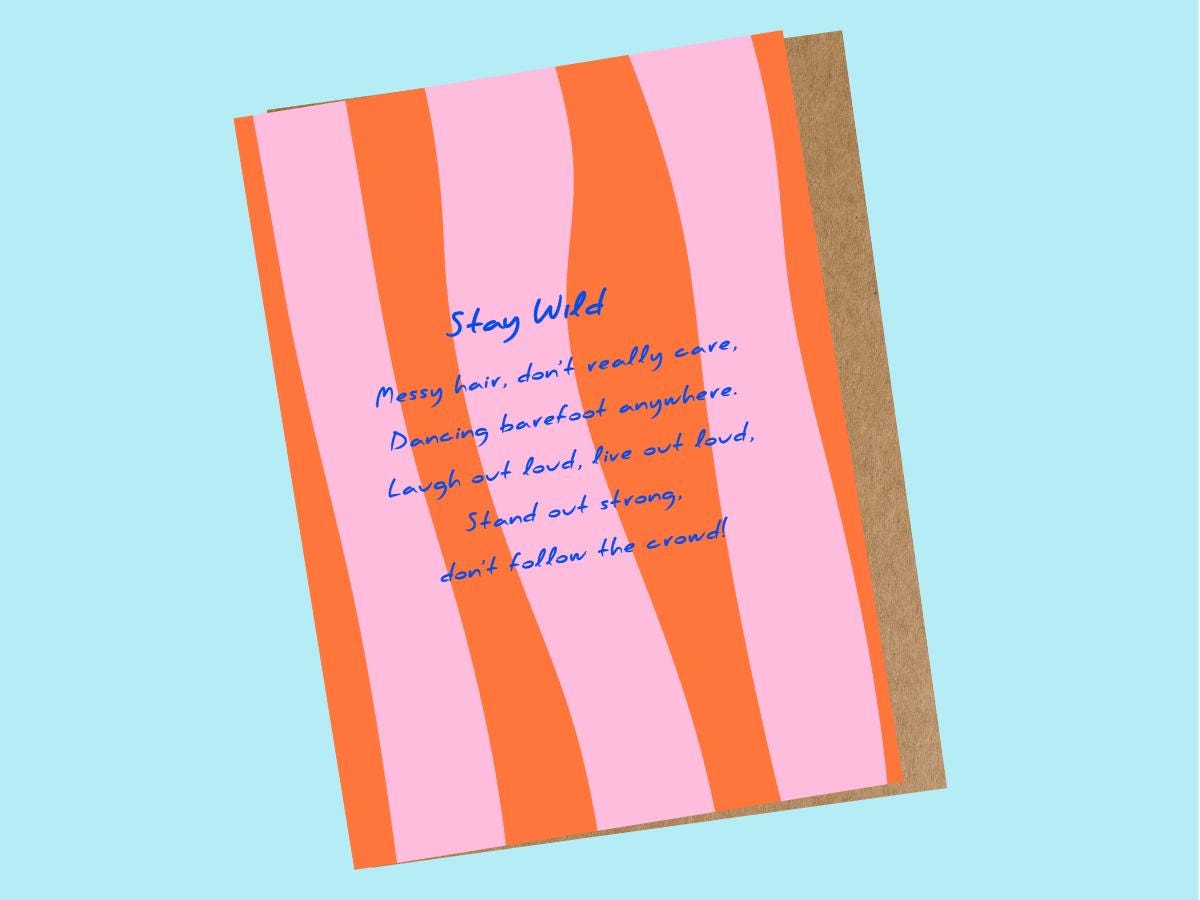 Stay Wild
Messy hair, don't really care,
Dancing barefoot anywhere.
Laugh out loud, live out loud,
Stand out strong,
don't follow the crowd!